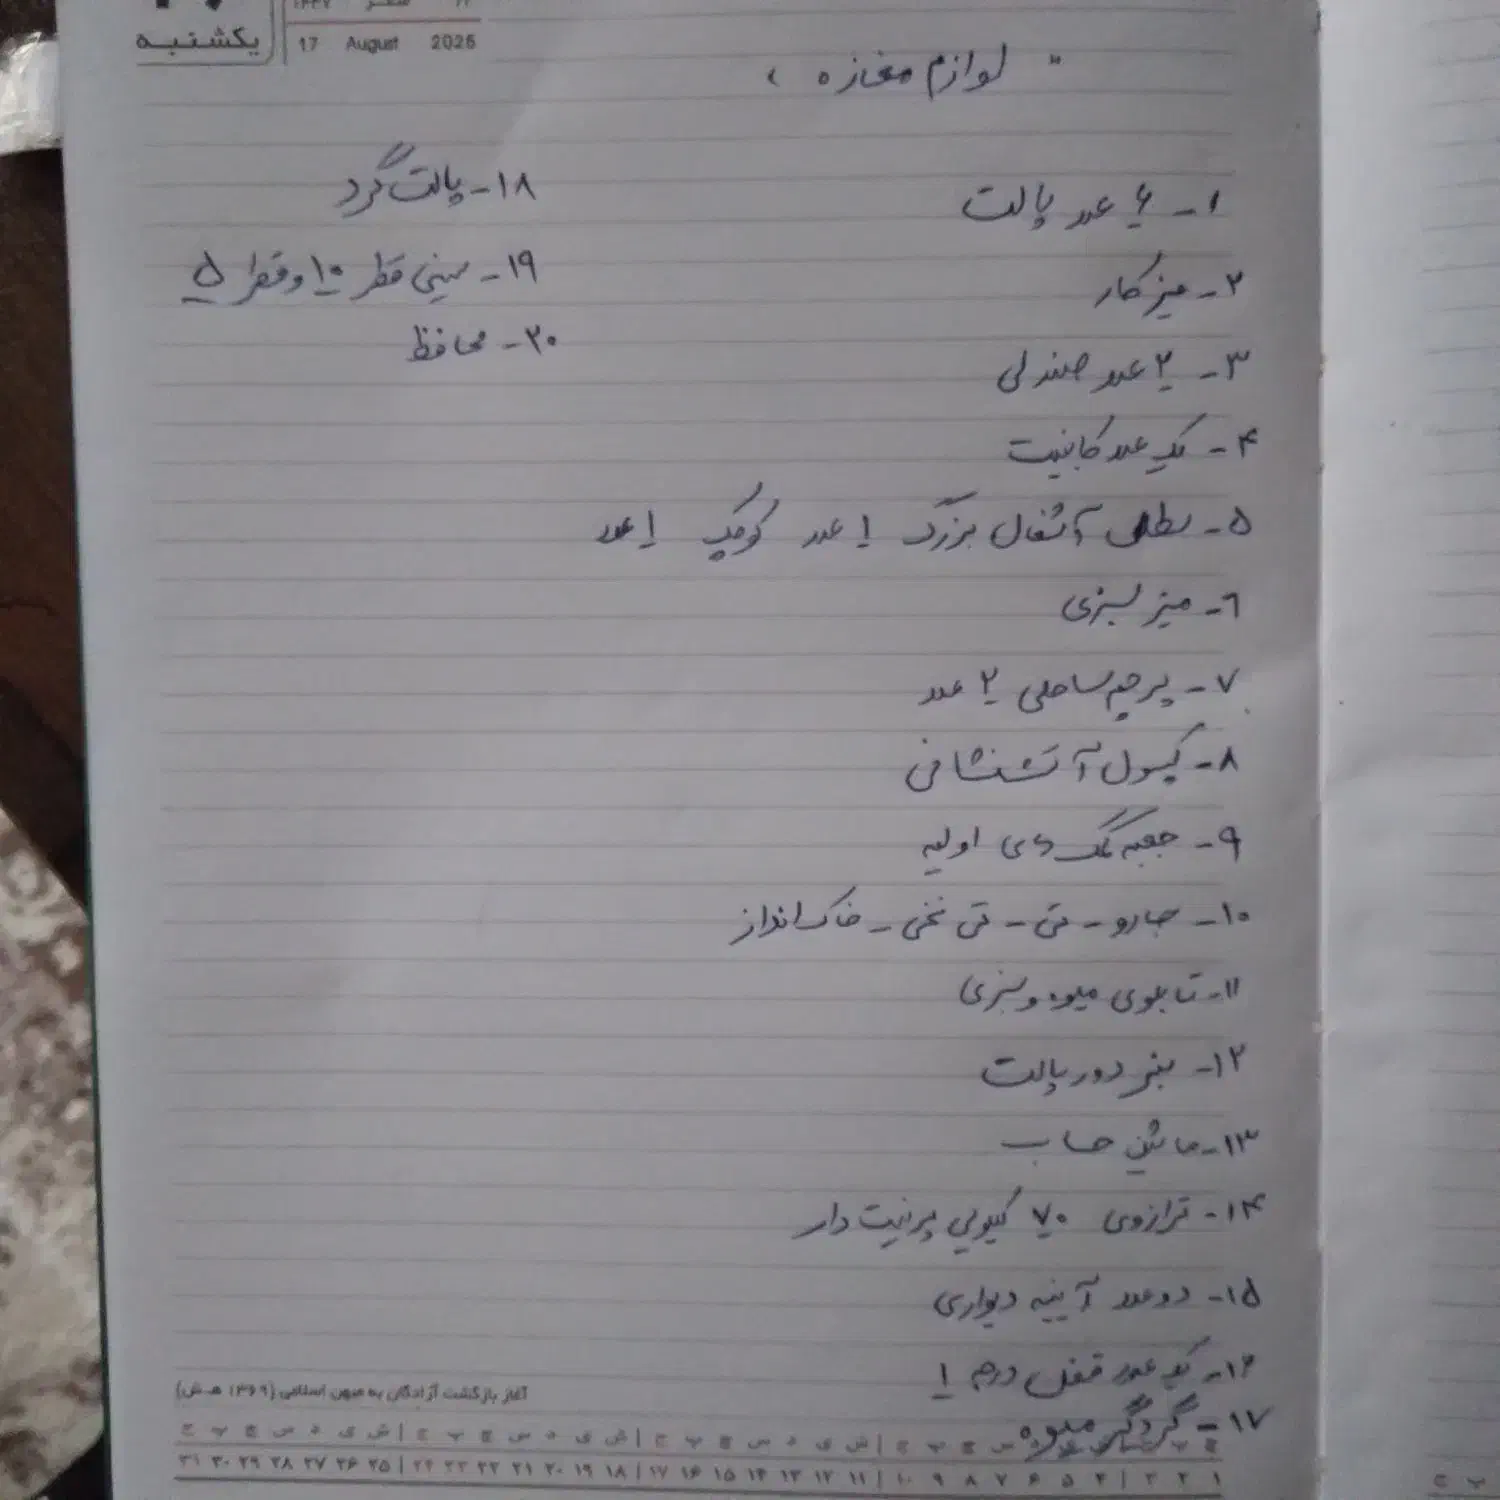 یکشنبه
17 August 2025
" لوازم مغازه "
۱- ۶ عدد پالت
۲- میز کار
۳- ۲ عدد صندلی
۴- یک عدد کابینت
۵- سطل آشغال بزرگ ۱ عدد کوچک ۱ عدد
۶- میز سبزی
۷- پرچم ساحلی ۲ عدد
۸- کپسول آتشنشانی
۹- جعبه کمک های اولیه
۱۰- جارو - تی - تی نخی - خاک انداز
۱۱- تابلوی میوه و سبزی
۱۲- بنر دور پالت
۱۳- ماشین حساب
۱۴- ترازوی ۷۰ کیلویی پرینت دار
۱۵- دو عدد آیینه دیواری
۱۶- یک عدد قفل درم ۱
۱۷- گردگیر میوه
۱۸- پالت گرد
۱۹- سینی قطر ۱۰ و قطر ۵
۲۰- محافظ
آغاز بازگشت آزادگان به میهن اسلامی (۱۳۶۹ ه‍.ش)
۱ ۲ ۳ | ۴ ۵ ۶ ۷ ۸ ۹ ۱۰ | ۱۱ ۱۲ ۱۳ ۱۴ ۱۵ ۱۶ ۱۷ | ۱۸ ۱۹ ۲۰ ۲۱ ۲۲ ۲۳ ۲۴ | ۲۵ ۲۶ ۲۷ ۲۸ ۲۹ ۳۰ ۳۱